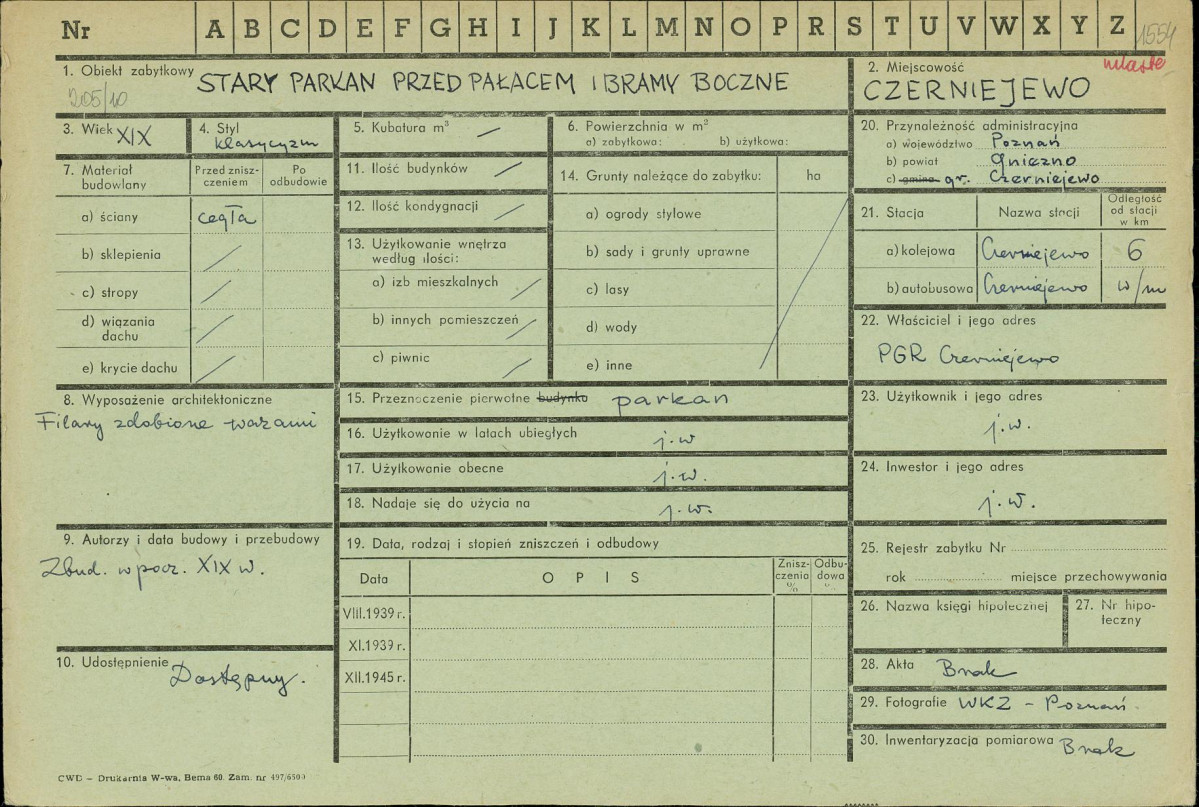 Nr A B C D E F G H I J K L M N O P R S T U V W X Y Z
1554
miasto
1. Obiekt zabytkowy STARY PARKAN PRZED PAŁACEM I BRAMY BOCZNE
205/10
2. Miejscowość
CZERNIEJEWO
3. Wiek XIX
4. Styl
klasycyzm
5. Kubatura m³ /
6. Powierzchnia w m²
a) zabytkowa: b) użytkowa:
7. Materiał budowlany
Przed znisz-
czeniem
Po
odbudowie
a) ściany cegła
b) sklepienia /
c) stropy /
d) wiązania
dachu /
e) krycie dachu /
11. Ilość budynków /
12. Ilość kondygnacji /
13. Użytkowanie wnętrza
według ilości:
a) izb mieszkalnych /
b) innych pomieszczeń /
c) piwnic /
14. Grunty należące do zabytku: ha
a) ogrody stylowe
b) sady i grunty uprawne
c) lasy
d) wody
e) inne
20. Przynależność administracyjna
a) województwo Poznań
b) powiat Gniezno
c) gmina gr. Czerniejewo
21. Stacja Nazwa stacji
Odległość
od stacji
w km
a) kolejowa Czerniejewo 6
b) autobusowa Czerniejewo w/m
22. Właściciel i jego adres
PGR Czerniejewo
8. Wyposażenie architektoniczne
Filary zdobione wazami
15. Przeznaczenie pierwotne budynku parkan
16. Użytkowanie w latach ubiegłych j.w
17. Użytkowanie obecne j.w.
18. Nadaje się do użycia na j.w.
23. Użytkownik i jego adres
j.w.
24. Inwestor i jego adres
j.w.
9. Autorzy i data budowy i przebudowy
Zbud. w pocz. XIX w.
10. Udostępnienie Dostępny.
19. Data, rodzaj i stopień zniszczeń i odbudowy
Data OPIS
Znisz-
czenia
%
Odbu-
dowa
VIII.1939 r.
XI.1939 r.
XII.1945 r.
25. Rejestr zabytku Nr
rok miejsce przechowywania
26. Nazwa księgi hipotecznej
27. Nr hipo-
teczny
28. Akta Brak
29. Fotografie WKZ - Poznań
30. Inwentaryzacja pomiarowa Brak
CWD – Drukarnia W-wa, Bema 60. Zam. nr 497/6500